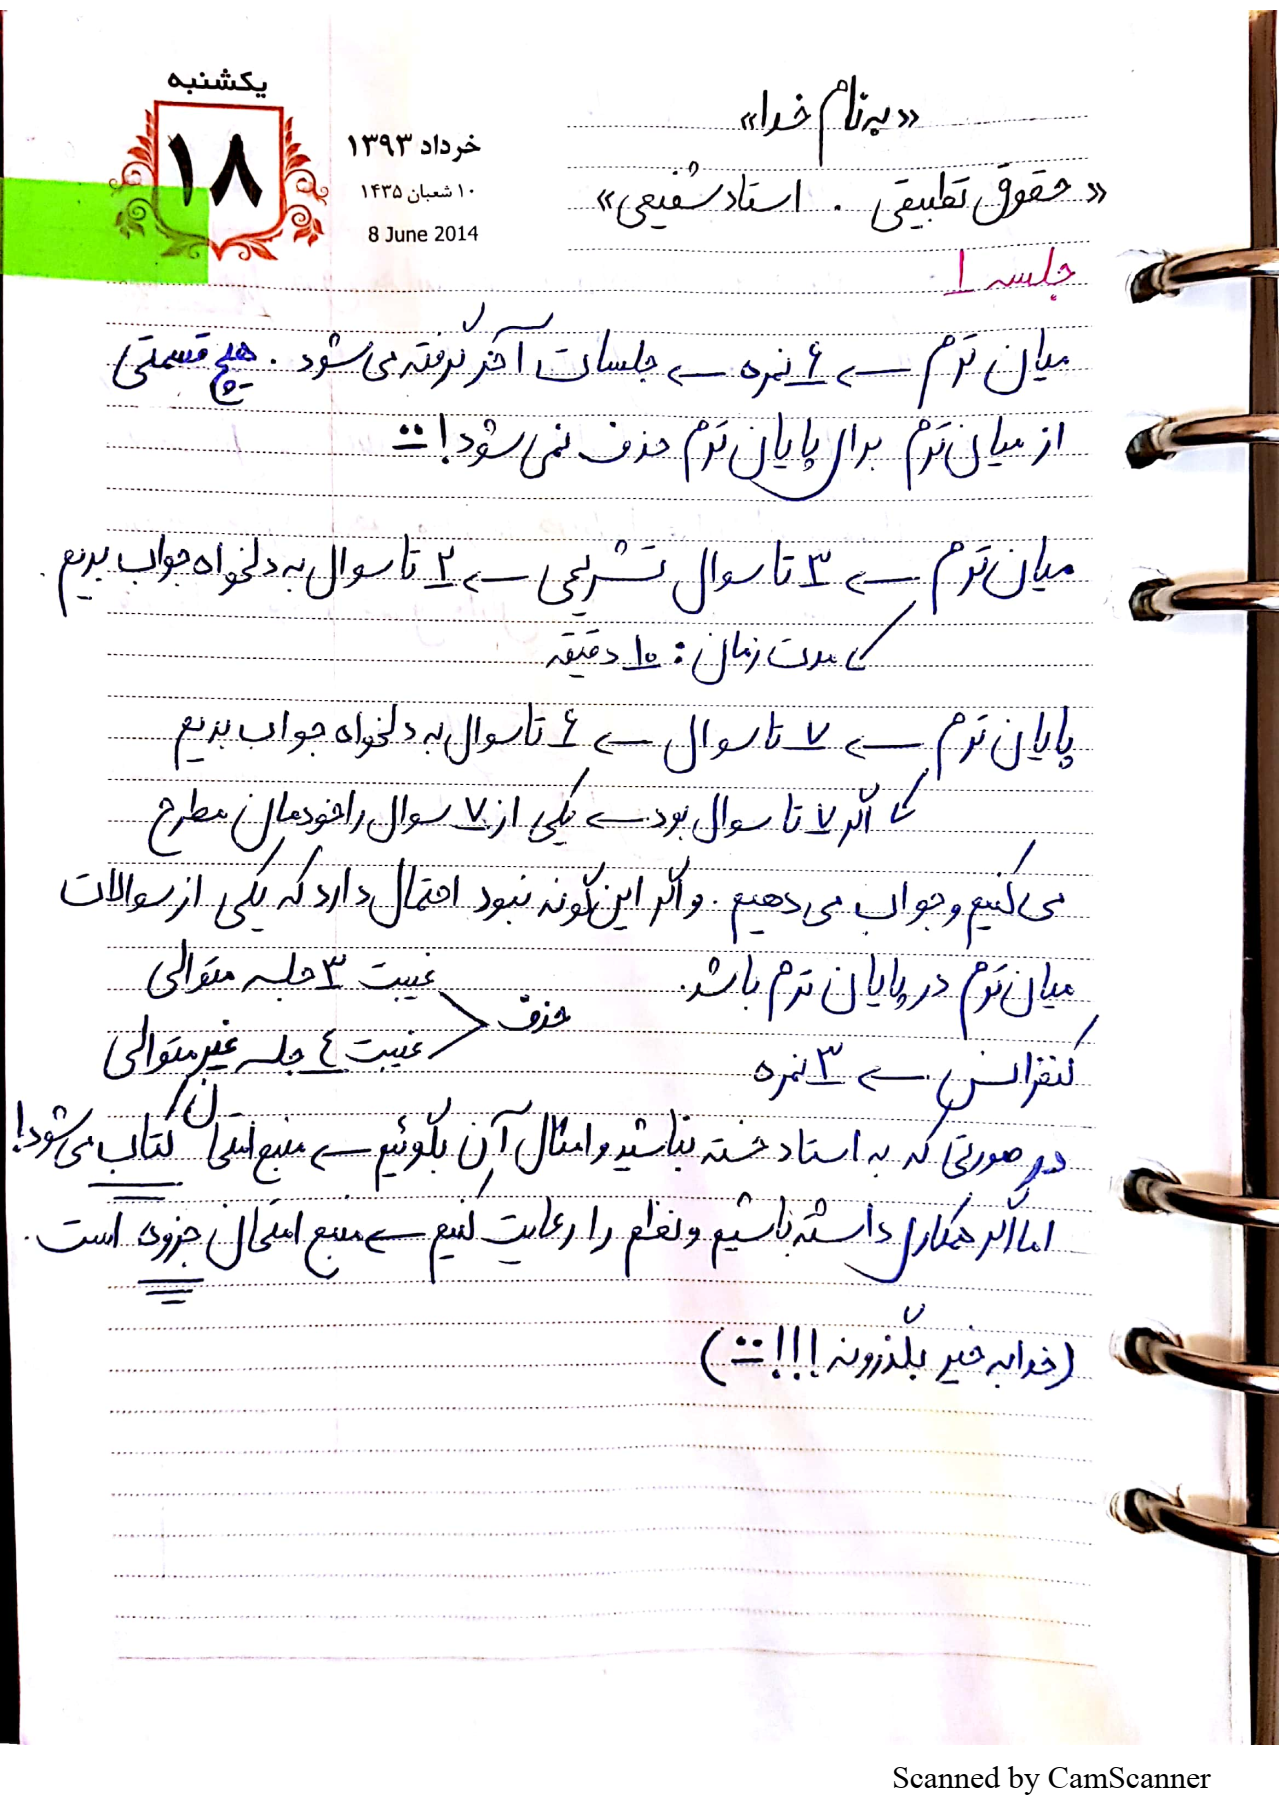 یکشنبه
۱۸
خرداد ۱۳۹۳
۱۰ شعبان ۱۴۳۵
8 June 2014
«به نام خدا»
«حقوق تطبیقی . استاد شفیعی»
جلسه ۱
میان ترم ← ۶ نمره ← جلسات آخر گرفته می شود . هیچ قسمتی
از میان ترم برای پایان ترم حذف نمی شود!
میان ترم ← ۳ تا سوال تشریحی ← ۲ تا سوال به دلخواه جواب بدیم .
مدت زمان : ۱۰ دقیقه
پایان ترم ← ۷ تا سوال ← ۶ تا سوال به دلخواه جواب بدیم
اگر ۷ تا سوال بود ← یکی از ۷ سوال را خودمان مطرح
می کنیم و جواب می دهیم . و اگر این گونه نبود احتمال دارد که یکی از سوالات
میان ترم در پایان ترم باشد.
غیبت ۳ جلسه متوالی
حذف
غیبت ٤ جلسه غیر متوالی
کنفرانس ← ۳ نمره
در صورتی که به استاد خسته نباشید و امثال آن بگوئیم ← منبع امتحان کتاب می شود!
اما اگر همکاری داشته باشیم و نظم را رعایت کنیم ← منبع امتحان جزوه است .
(خدا به خیر بگذرونه !!!)
Scanned by CamScanner